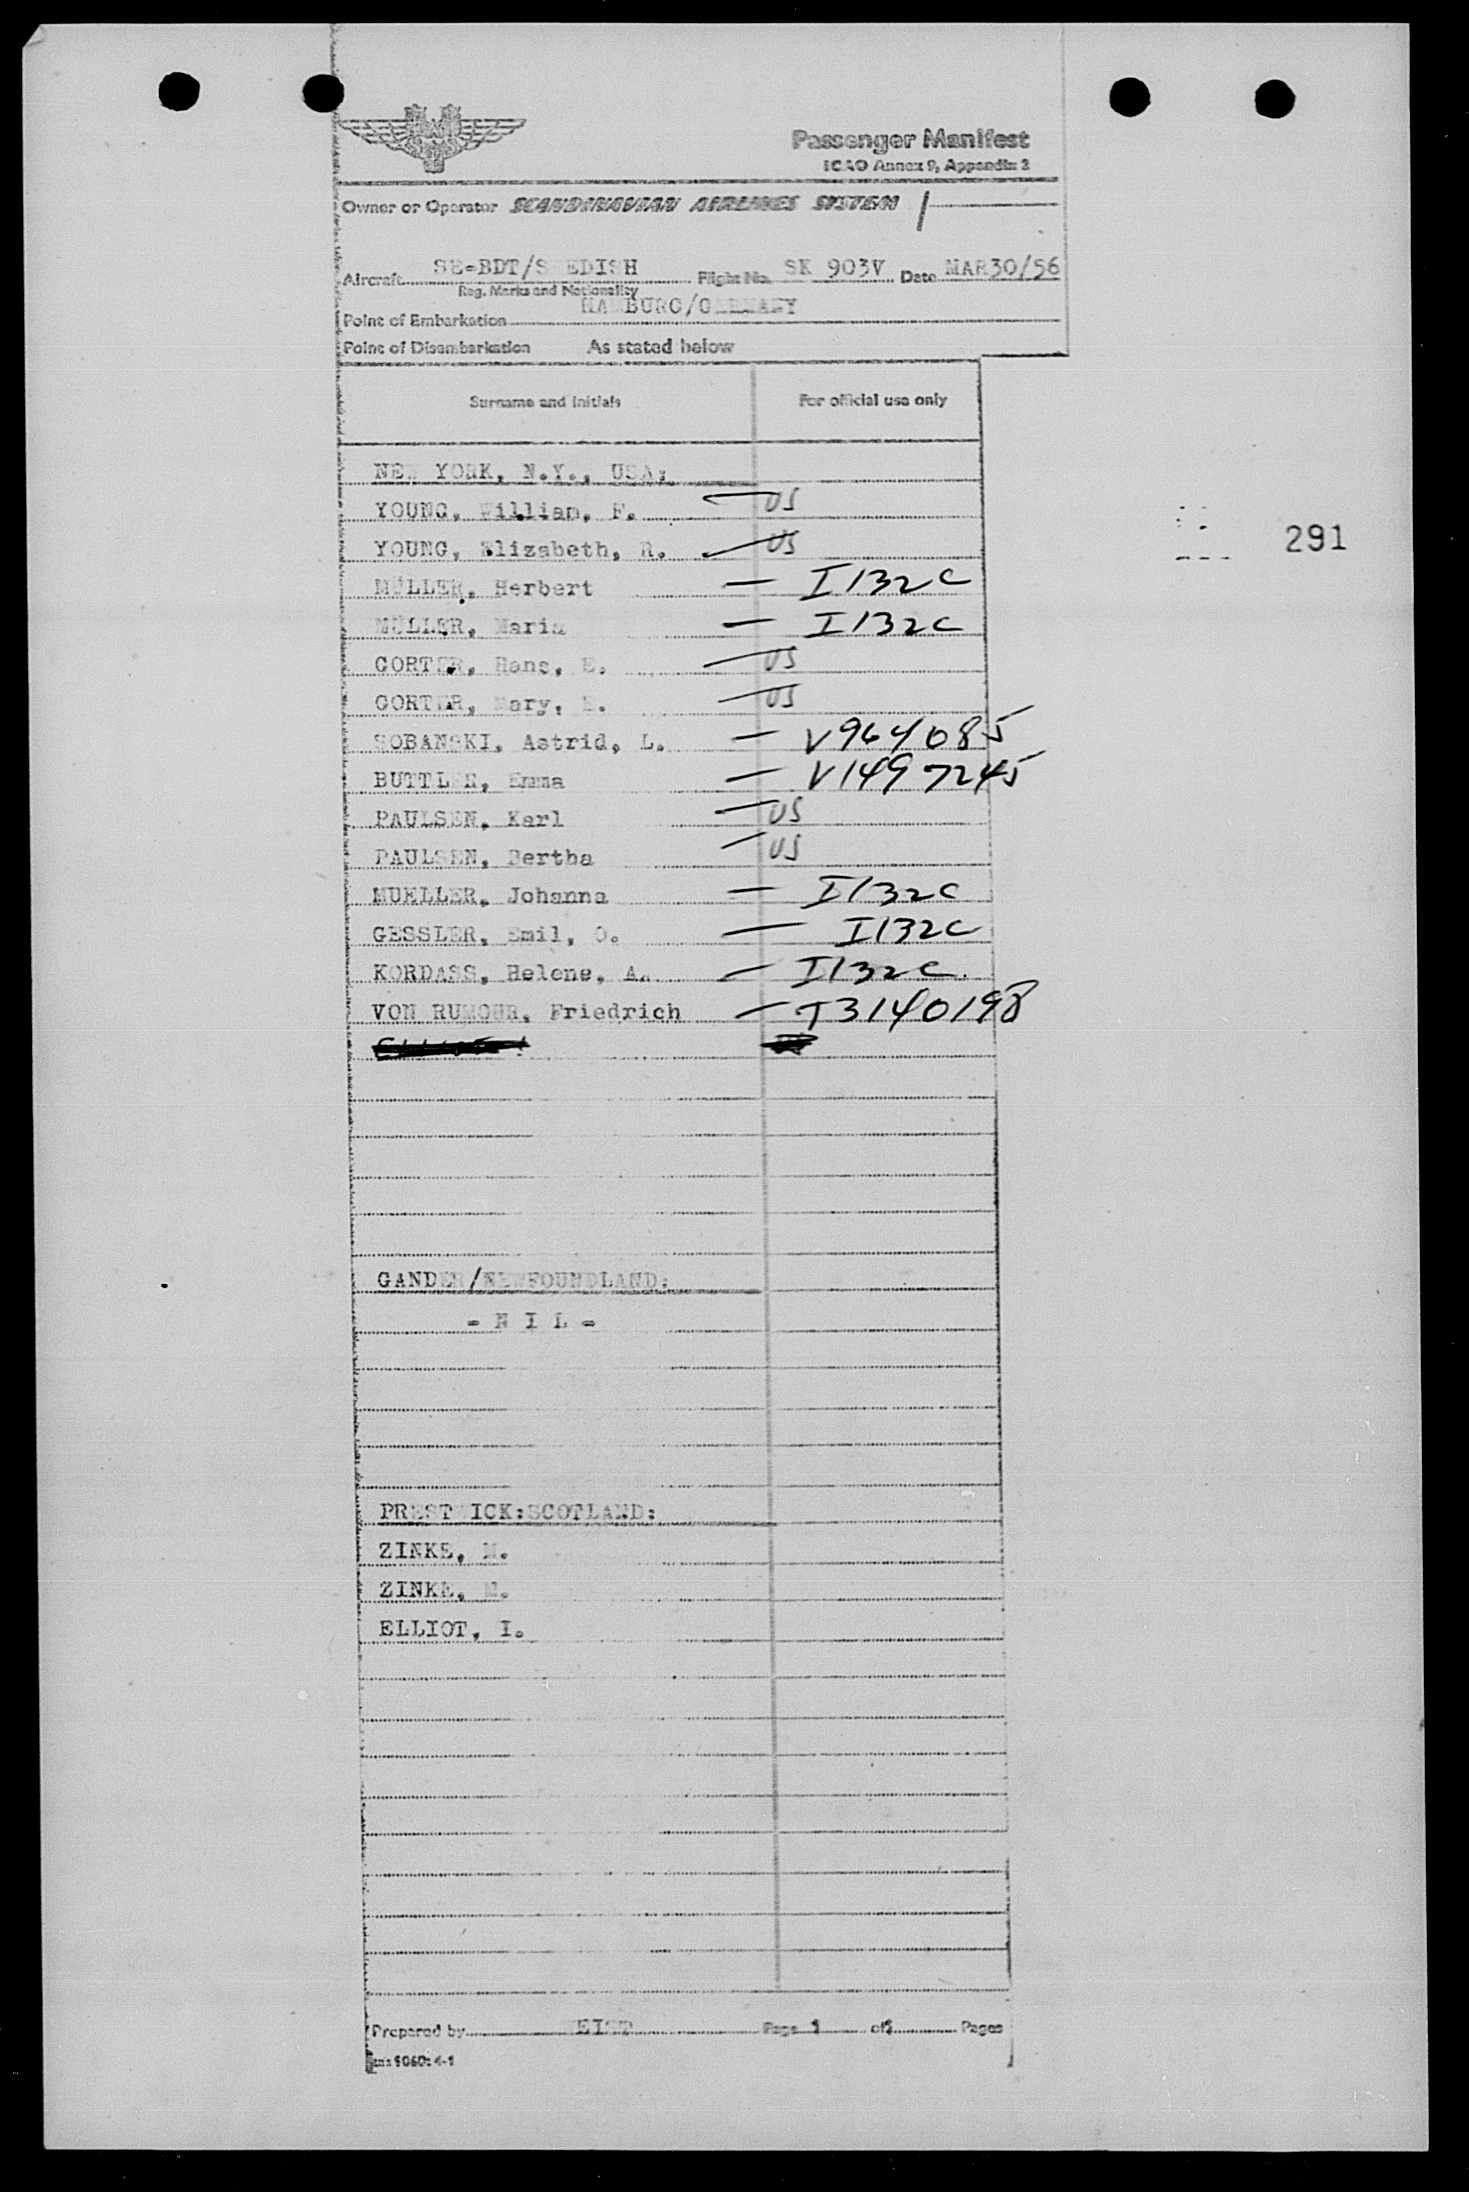 Passenger Manifest
ICAO Annex 9, Appendix 3
Owner or Operator SCANDINAVIAN AIRLINES SYSTEM
Aircraft SE-BDT/SWEDISH Flight No. SK 903V Date MAR30/56
Reg. Marks and Nationality
Point of Embarkation HAMBURG/GERMANY
Point of Disembarkation As stated below
Surname and Initials For official use only
NEW YORK, N.Y., USA:
YOUNG, William, F. — US
YOUNG, Elizabeth, R. — US
MÜLLER, Herbert — I132C
MÜLLER, Maria — I132C
GORTER, Hans, E. — US
GORTER, Mary, E. — US
SOBANSKI, Astrid, L. — V964085
BUTTLER, Emma — V1497245
PAULSEN, Karl — US
PAULSEN, Bertha — US
MUELLER, Johanna — I132C
GESSLER, Emil, O. — I132C
KORDASS, Helene, A. — I132C.
VON RUMOHR, Friedrich — T3140198
291
GANDER/NEWFOUNDLAND:
- N I L -
PRESTWICK:SCOTLAND:
ZINKE, M.
ZINKE, M.
ELLIOT, I.
Prepared by Page 1 of 1 Pages